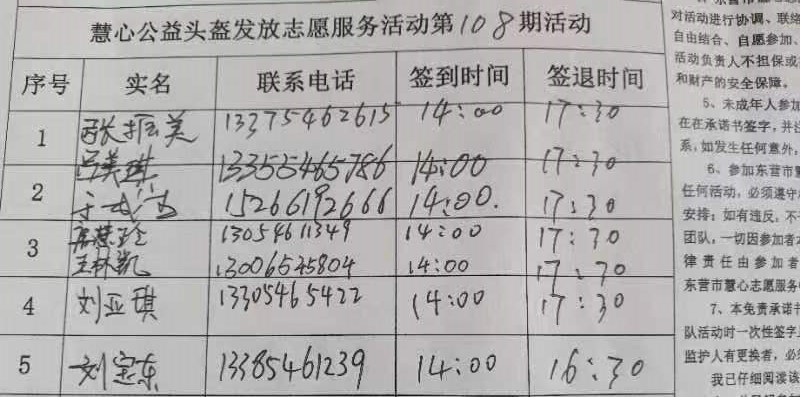 慧心公益头盔发放志愿服务活动第108期活动
序号 实名 联系电话 签到时间 签退时间
1 张振美 13375462615 14:00 17:30
吕美琪 13355465786 14:00 17:30
2 15266192666 14:00. 17:30
3 13054611349 14:00 17:30
王林凯 13006535804 14:00 17:30
4 刘亚琪 13305465422 14:00 17:30
5 刘宝东 13385461239 14:00 16:30
对活动进行协调、联络
自由结合、自愿参加、
活动负责人不担保或
和财产的安全保障。
5、未成年人参加
在在承诺书签字，并注
系，如发生任何意外，
6、参加东营市慧
任何活动，必须遵守
安排；如有违反，不
团队，一切因参加者
律责任由参加者
东营市慧心志愿服务
7、本免责承诺书
队活动时一次性签字
监护人有更换者，必须
我已仔细阅读该